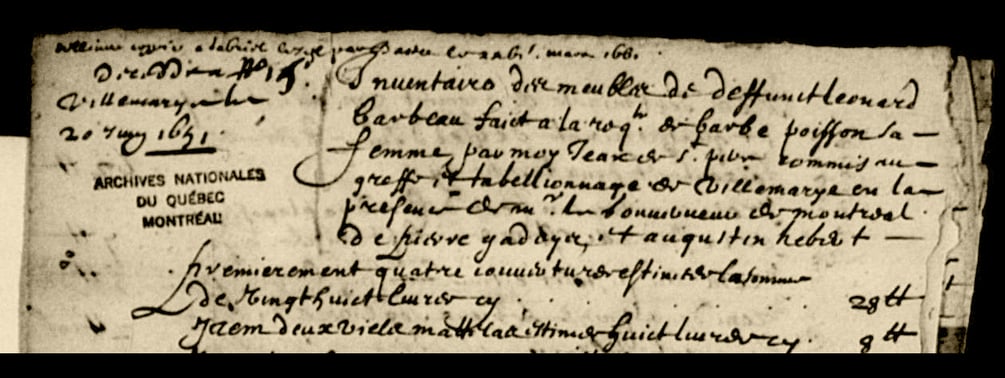 mars 1651
Villemarye le
20 Juin 1651
ARCHIVES NATIONALES
DU QUÉBEC
MONTRÉAL
Inventaire des meubles de deffunct leonard
barbeau faict a la reqte de barbe poisson sa
femme, par moy Jean de st. pere commis au
greffe et tabellionnage de villemarye en la
presence de mr. le gouverneur de montreal
de pierre gadoys, et augustin hebert
premierement quatre couvertures estimees la somme
de vingt huict livres cy 28 tt
Item deux viels mattelas estimes huict livres cy 8 tt